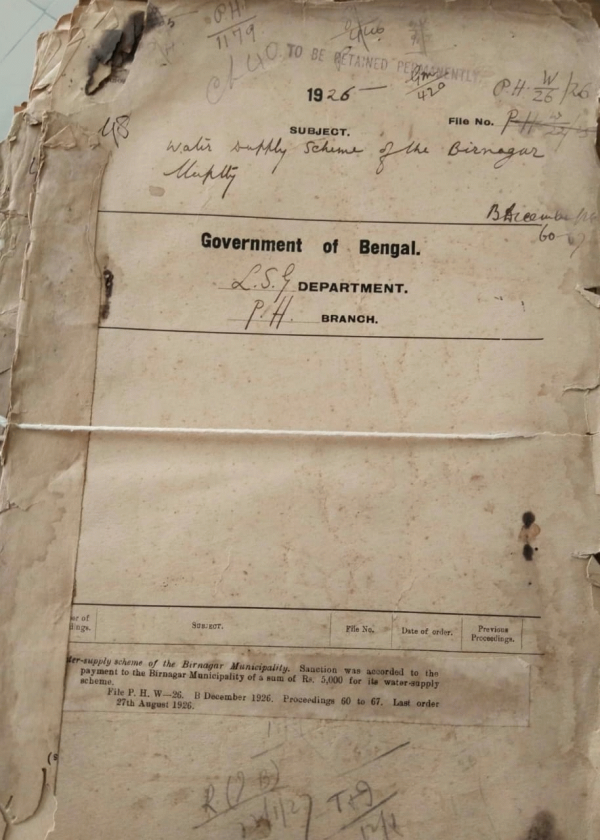 PH
1179
Ch 40
TO BE RETAINED PERMANENTLY.
1926
P.H. W/26 /26
File No.
48
SUBJECT.
Water supply Scheme of the Birnagar
Muplty
B December
60
Government of Bengal.
L.S.G DEPARTMENT.
P.H. BRANCH.
SUBJECT. File No. Date of order. Previous
Proceedings.
ter-supply scheme of the Birnagar Municipality. Sanction was accorded to the
payment to the Birnagar Municipality of a sum of Rs. 5,000 for its water-supply
scheme.
File P. H. W—26. B December 1926. Proceedings 60 to 67. Last order
27th August 1926.